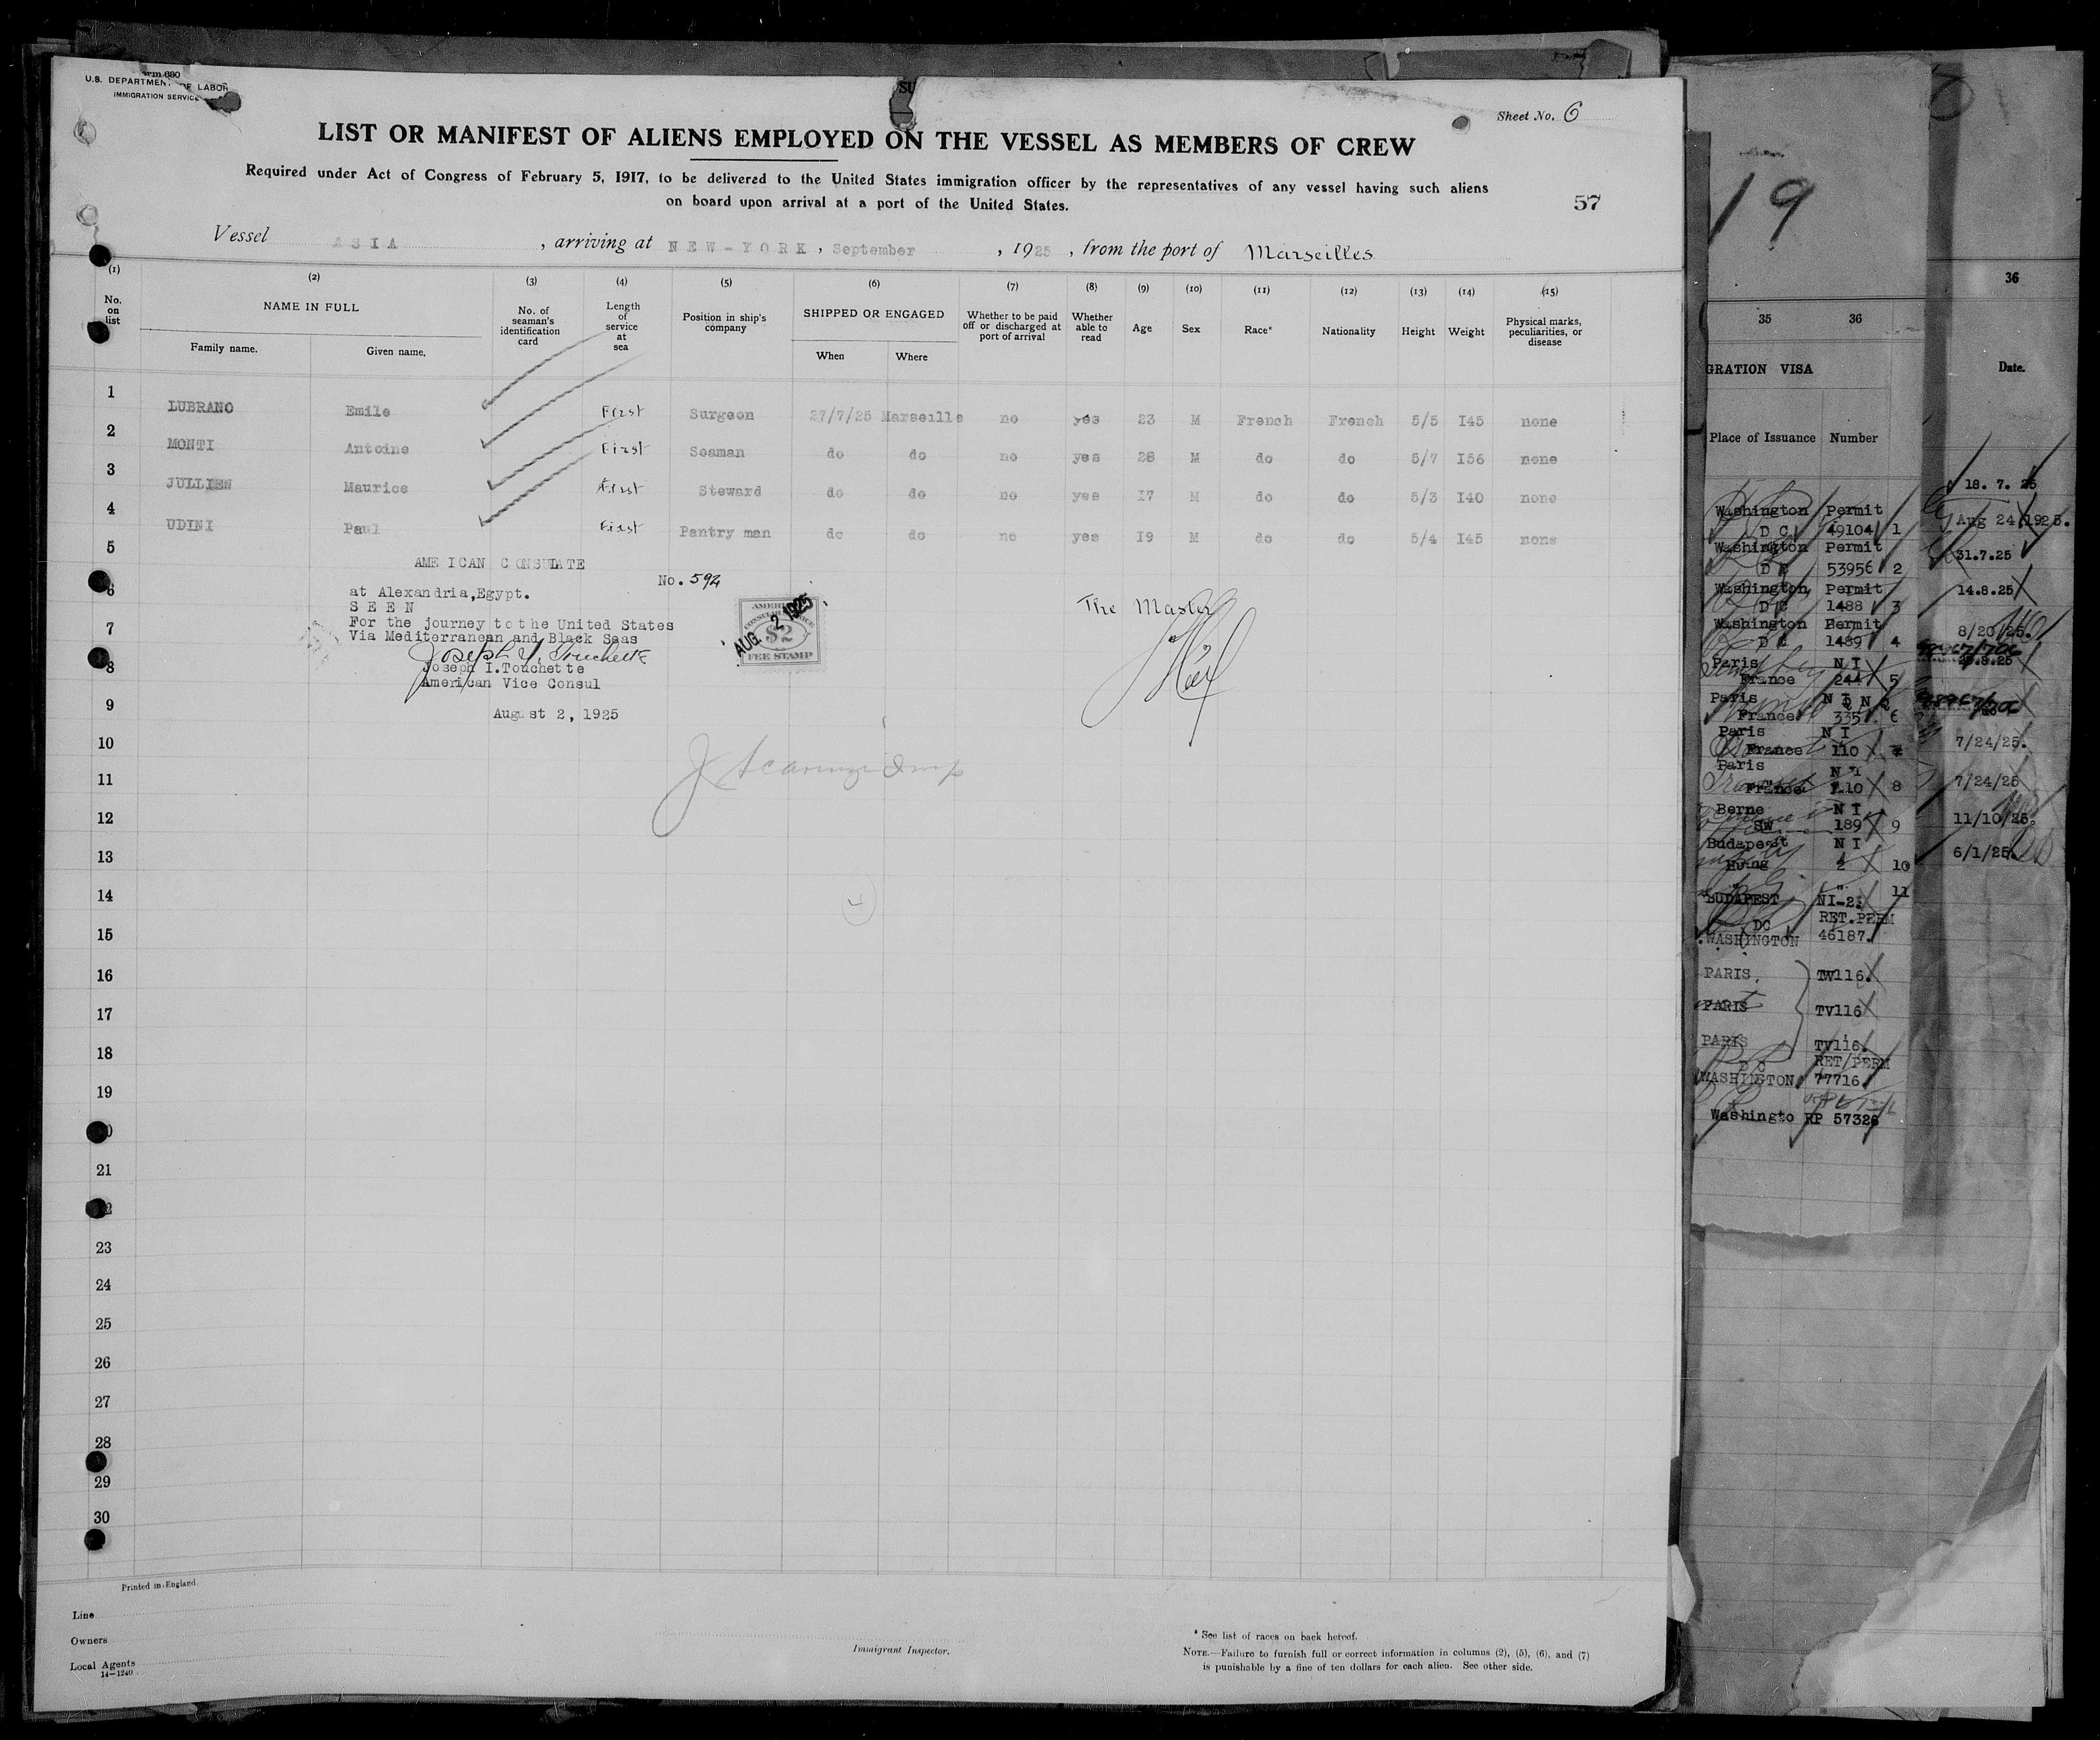 U.S. DEPARTMENT OF LABOR
IMMIGRATION SERVICE
Sheet No. 6
LIST OR MANIFEST OF ALIENS EMPLOYED ON THE VESSEL AS MEMBERS OF CREW
Required under Act of Congress of February 5, 1917, to be delivered to the United States immigration officer by the representatives of any vessel having such aliens
on board upon arrival at a port of the United States.
57
Vessel ASIA, arriving at NEW-YORK, September, 1925, from the port of Marseilles
(1) (2) (3) (4) (5) (6) (7) (8) (9) (10) (11) (12) (13) (14) (15)
No. on list
NAME IN FULL
Family name. Given name.
No. of seaman's identification card
Length of service at sea
Position in ship's company
SHIPPED OR ENGAGED
When Where
Whether to be paid off or discharged at port of arrival
Whether able to read
Age
Sex
Race*
Nationality
Height
Weight
Physical marks, peculiarities, or disease
1 LUBRANO Emile First Surgeon 27/7/25 Marseille no yes 23 M French French 5/5 I45 none
2 MONTI Antoine First Seaman do do no yes 28 M do do 5/7 I56 none
3 JULLIEN Maurice First Steward do do no yes I7 M do do 5/3 I40 none
4 UDINI Paul First Pantry man do do no yes I9 M do do 5/4 I45 none
5
AME ICAN CONSULATE
No. 594
at Alexandria,Egypt.
SEEN
For the journey to the United States
Via Mediterranean and Black Seas
Joseph I. Touchette
Joseph I.Touchette
American Vice Consul
August 2, 1925
AUG. 2 1925
$2
FEE STAMP
The Master
6
7
8
9
10
11
12
13
14
15
16
17
18
19
21
23
24
25
26
27
28
29
30
Printed in England.
Line
Owners
Local Agents
14—1240
Immigrant Inspector.
* See list of races on back hereof.
NOTE.—Failure to furnish full or correct information in columns (2), (5), (6), and (7)
is punishable by a fine of ten dollars for each alien. See other side.
19
36
35 36
GRATION VISA
Date.
Place of Issuance Number
18. 7. 25
Washington Permit
D C 49104 1
Aug 24 1925.
Washington Permit
D C 53956 2
31.7.25
Washington Permit
D C 1488 3
14.8.25
Washington Permit
D C 1489 4
8/20/25.
Paris N I
France 244 5
Paris
France 335 6
Paris N I
France 110
7/24/25.
Paris N I
France 110 8
7/24/25
Berne N I
SW 189 9
11/10/25.
Budapest N I
Hung 2 10
6/1/25.
11
BUDAPEST NI-2.
DC RET.PERM
WASHINGTON 46187.
PARIS. TV116.
PARIS TV116
PARIS TV116.
D C RET/PERM
WASHINGTON 77716
Washingto RP 57326